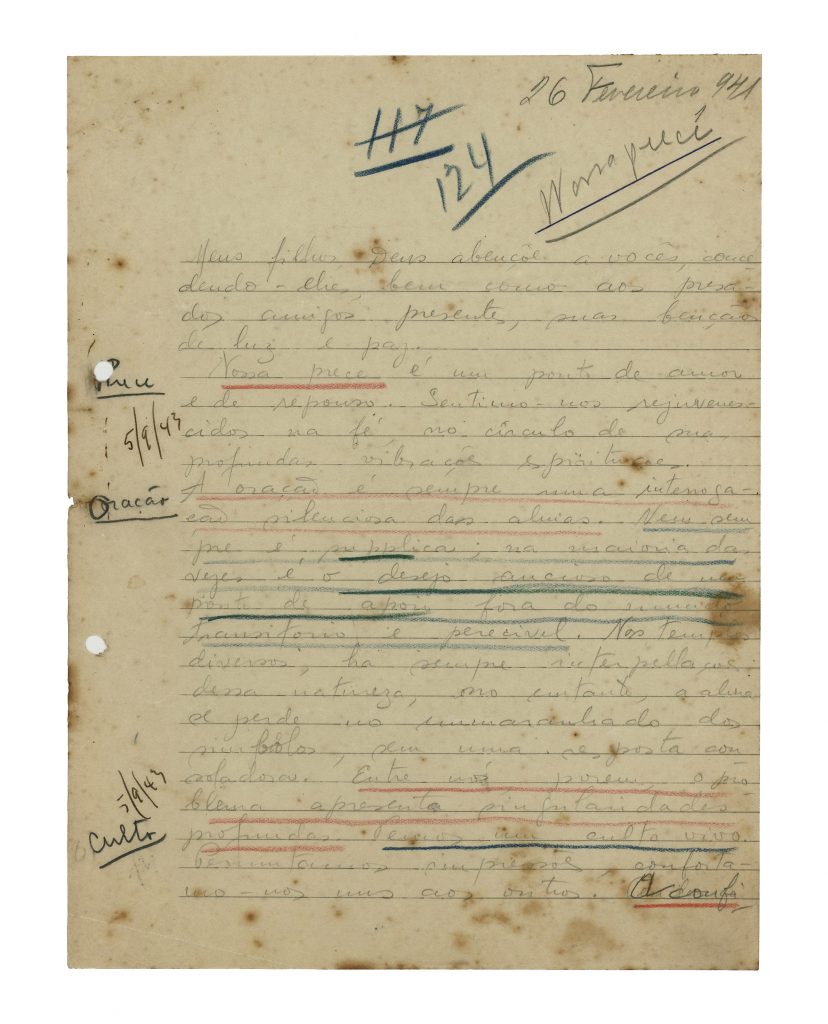 26 Fevereiro 941
117
124
Nossa prece
Meus filhos, Deus abençõe a vocês, conce
dendo-lhes, bem como aos presa-
dos amigos presentes, suas bençãos
de luz e paz.
Nossa prece é um ponto de amor
e de repouso. Sentimo-nos rejuvenes-
cidos na fé, no circulo de suas
profundas vibrações espirituaes.
Prece
5/9/43
A oração é sempre uma interroga-
ção silenciosa das almas. Nem sem
Oração
pre é supplica; na maioria das
vezes é o desejo ancioso de um
ponto de apoio fora do mundo
transitorio e perecivel. Nos templos
diversos, ha sempre interpellações
dessa natureza, no emtanto, a alma
se perde no emmaranhado dos
simbolos, sem uma resposta con
soladora. Entre nós porem, o pro
blema apresenta singularidades
profundas. Temos um culto vivo.
5/9/43
Culto
Permutamos impressões, conforta-
mo-nos uns aos outros. A confi